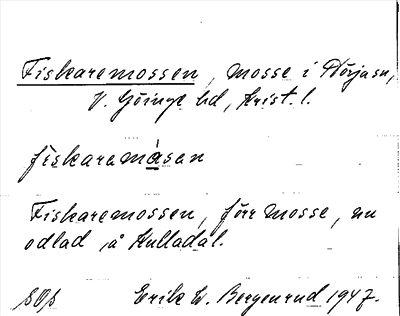 Fiskaremossen, mosse i Nörjasn,
V. Göinge hd, Krist. l.
fiskaremåsen
Fiskaremossen, förr mosse, nu
odlad å Hulladal.
Erik W. Bergenrud 1947.